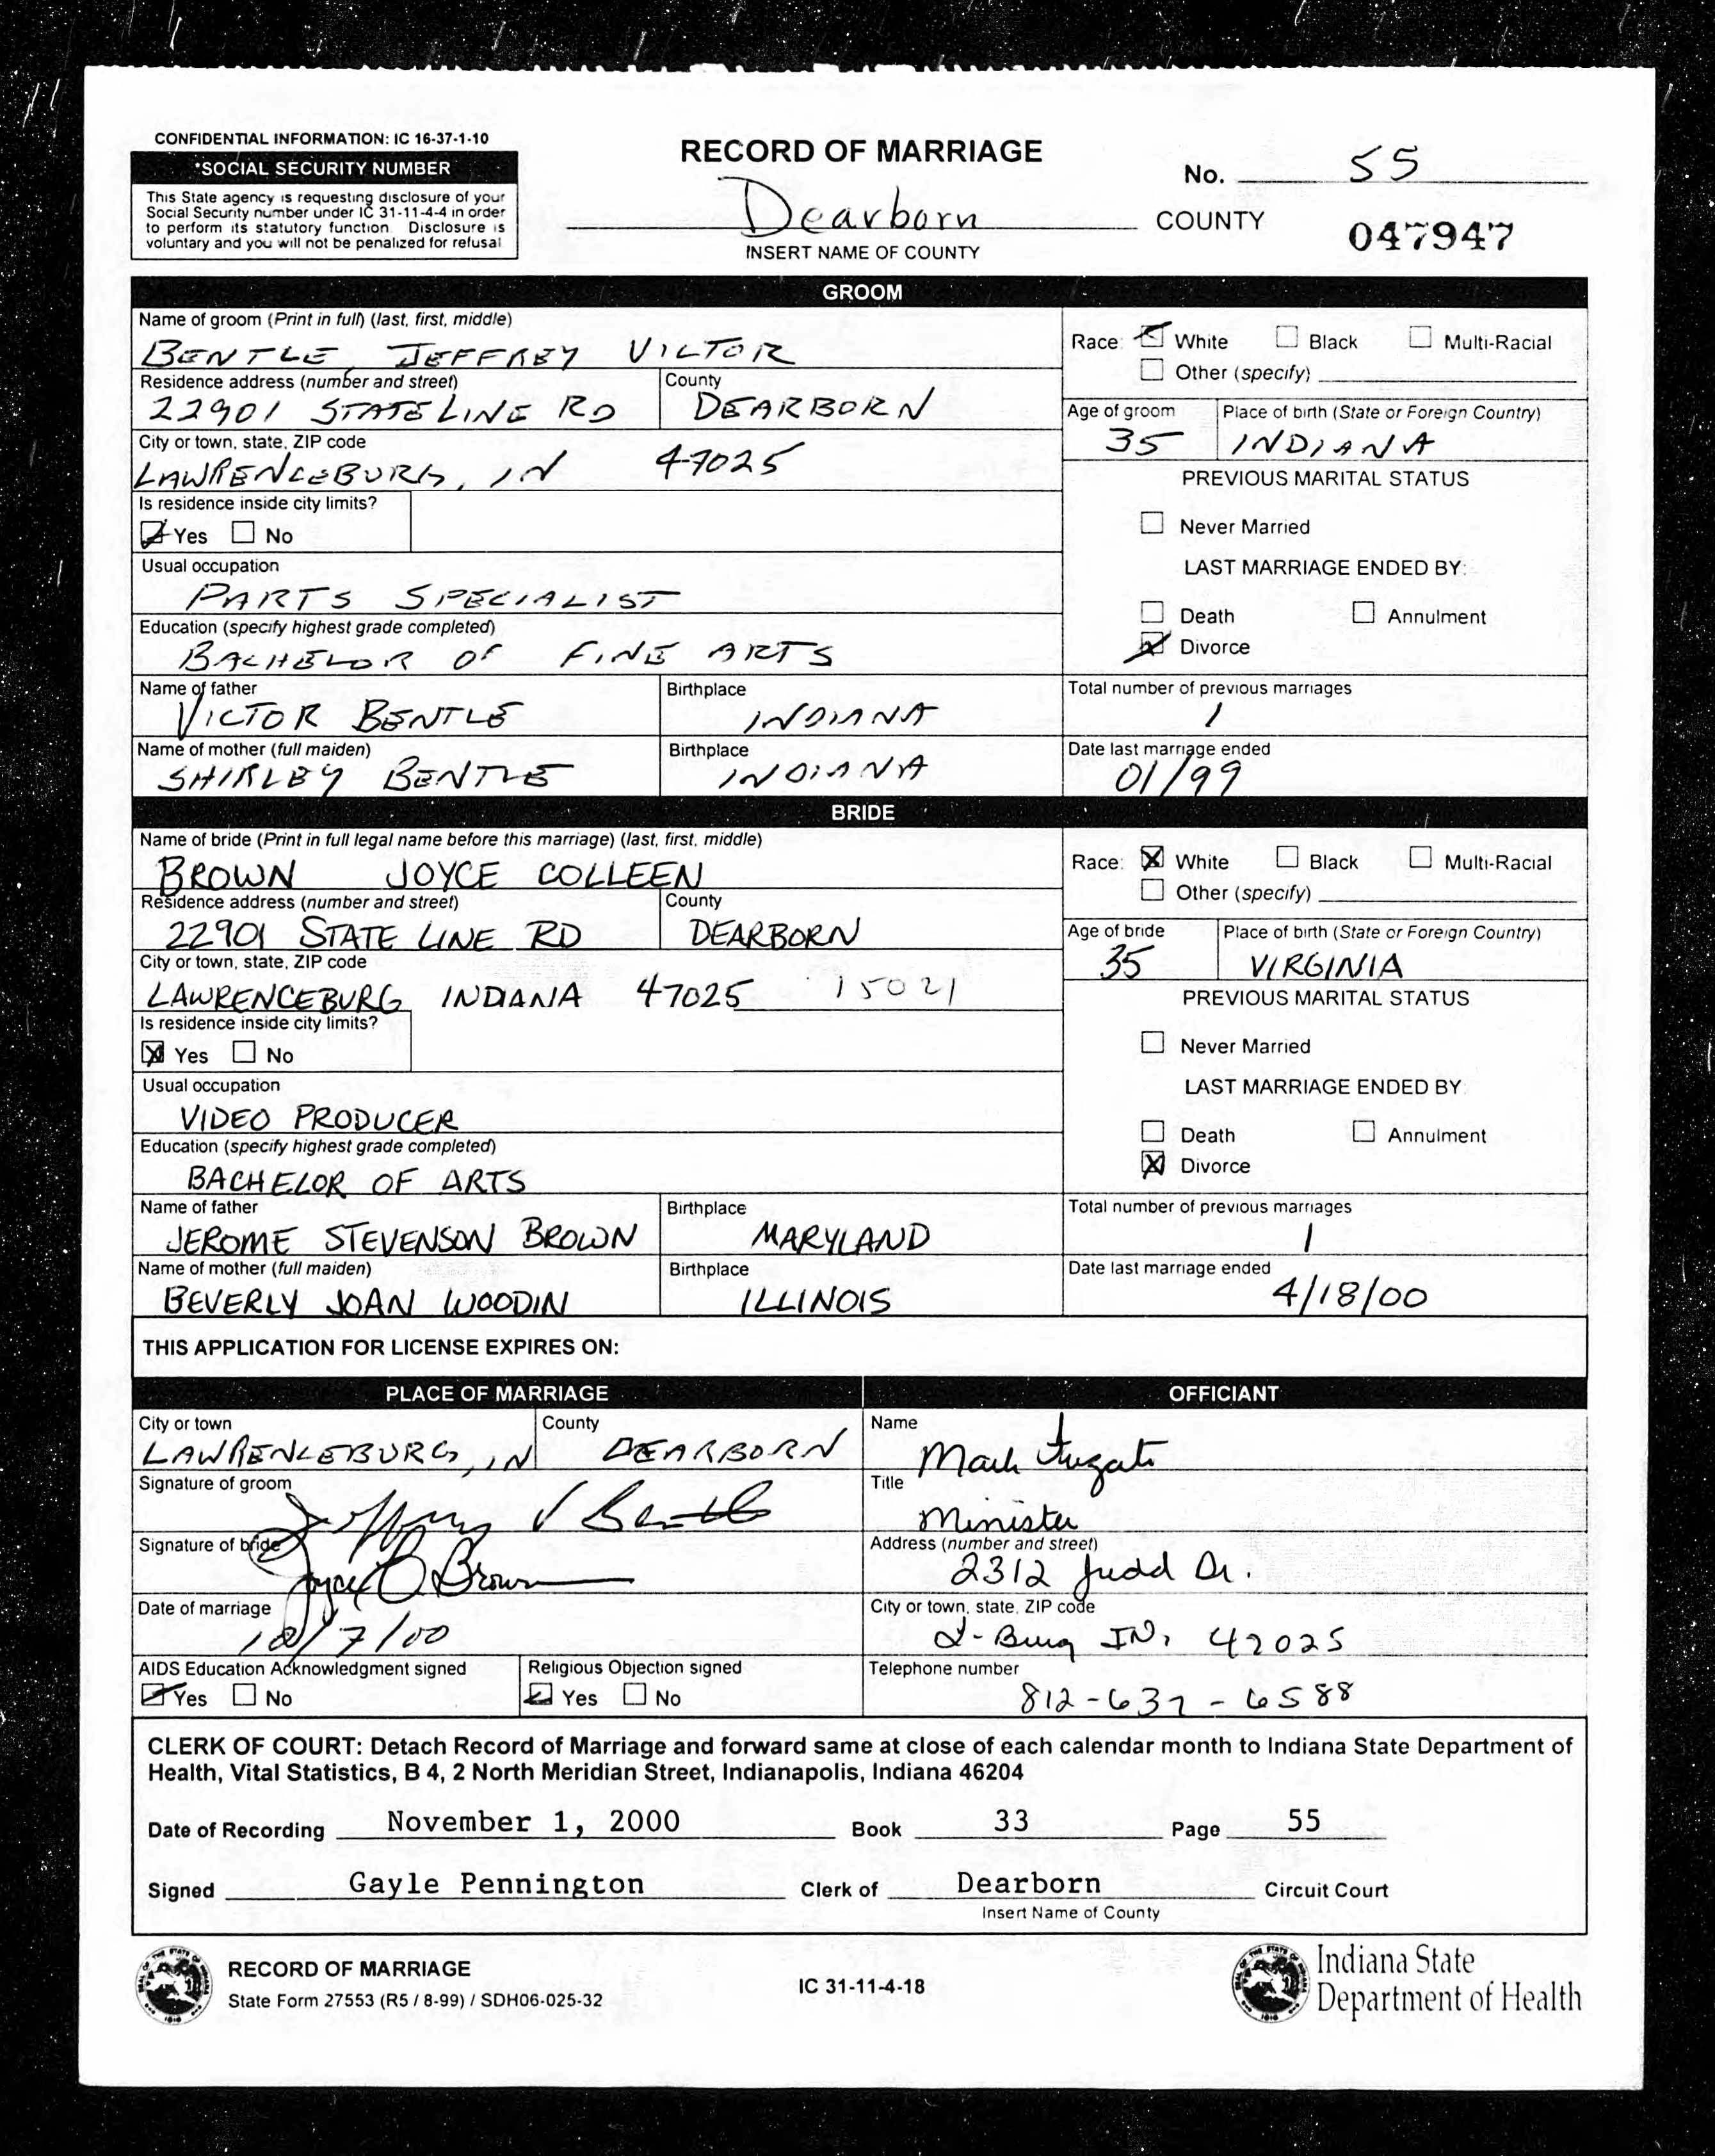 CONFIDENTIAL INFORMATION: IC 16-37-1-10
*SOCIAL SECURITY NUMBER
This State agency is requesting disclosure of your
Social Security number under IC 31-11-4-4 in order
to perform its statutory function. Disclosure is
voluntary and you will not be penalized for refusal
RECORD OF MARRIAGE
No. 55
Dearborn COUNTY
INSERT NAME OF COUNTY
047947
GROOM
Name of groom (Print in full) (last, first, middle)
BENTLE, JEFFREY VICTOR
Race: White Black Multi-Racial
Other (specify)
Residence address (number and street) County
22901 STATELINE RD DEARBORN
Age of groom Place of birth (State or Foreign Country)
35 INDIANA
City or town, state, ZIP code
LAWRENCEBURG, IN 47025
PREVIOUS MARITAL STATUS
Is residence inside city limits?
Yes No
Never Married
Usual occupation
PARTS SPECIALIST
LAST MARRIAGE ENDED BY:
Death Annulment
Divorce
Education (specify highest grade completed)
BACHELOR OF FINE ARTS
Name of father Birthplace
VICTOR BENTLE INDIANA
Total number of previous marriages
1
Name of mother (full maiden) Birthplace
SHIRLEY BENTLE INDIANA
Date last marriage ended
01/99
BRIDE
Name of bride (Print in full legal name before this marriage) (last, first, middle)
BROWN JOYCE COLLEEN
Race: White Black Multi-Racial
Other (specify)
Residence address (number and street) County
22901 STATE LINE RD DEARBORN
Age of bride Place of birth (State or Foreign Country)
35 VIRGINIA
City or town, state, ZIP code
LAWRENCEBURG INDIANA 47025 15021
PREVIOUS MARITAL STATUS
Is residence inside city limits?
Yes No
Never Married
Usual occupation
VIDEO PRODUCER
LAST MARRIAGE ENDED BY:
Death Annulment
Divorce
Education (specify highest grade completed)
BACHELOR OF ARTS
Name of father Birthplace
JEROME STEVENSON BROWN MARYLAND
Total number of previous marriages
1
Name of mother (full maiden) Birthplace
BEVERLY JOAN WOODIN ILLINOIS
Date last marriage ended
4/18/00
THIS APPLICATION FOR LICENSE EXPIRES ON:
PLACE OF MARRIAGE
City or town County
LAWRENCEBURG, IN DEARBORN
Signature of groom
Jeffrey V Bentle
Signature of bride
Joyce C Brown
Date of marriage
10/7/00
AIDS Education Acknowledgment signed
Yes No
Religious Objection signed
Yes No
OFFICIANT
Name
Mark Fugate
Title
Minister
Address (number and street)
2312 Judd Dr.
City or town, state, ZIP code
L-Burg IN, 47025
Telephone number
812-637-6588
CLERK OF COURT: Detach Record of Marriage and forward same at close of each calendar month to Indiana State Department of
Health, Vital Statistics, B 4, 2 North Meridian Street, Indianapolis, Indiana 46204
Date of Recording November 1, 2000 Book 33 Page 55
Signed Gayle Pennington Clerk of Dearborn Circuit Court
Insert Name of County
RECORD OF MARRIAGE
State Form 27553 (R5 / 8-99) / SDH06-025-32
IC 31-11-4-18
Indiana State
Department of Health